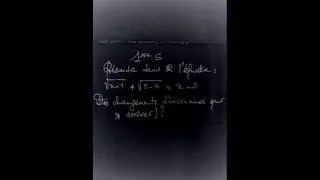 1ère S
Résoudre dans ℝ l'équation :
√x-1 + √5-x = x-3
Des changements d'inconnues pour
y arriver!?